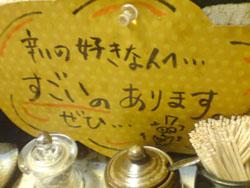 辛いの好きな人へ…
すごいの あります
ぜひ…